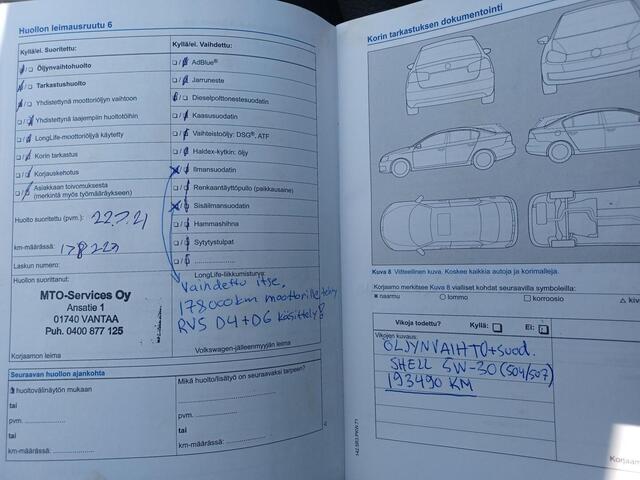 Huollon leimausruutu 6
Kyllä/ei. Suoritettu:
Öljynvaihtohuolto
Tarkastushuolto
Yhdistettynä moottoriöljyn vaihtoon
Yhdistettynä laajempiin huoltotöihin
LongLife-moottoriöljyä käytetty
Korin tarkastus
Korjauskehotus
Asiakkaan toivomuksesta
(merkintä myös työmääräykseen)
Huolto suoritettu (pvm.)
22.7.21
km-määrässä:
178223
Laskun numero:
Huollon suorittanut:
MTO-Services Oy
Ansatie 1
01740 VANTAA
Puh. 0400 877 125
Korjaamon leima
Kyllä/ei. Vaihdettu:
AdBlue®
Jarruneste
Dieselpolttonestesuodatin
Kaasusuodatin
Vaihteistoöljy: DSG®, ATF
Haldex-kytkin: öljy
Ilmansuodatin
Renkaantäyttöpullo (paikkausaine)
Sisäilmansuodatin
Hammashihna
Sytytystulpat
LongLife-liikkumisturva:
Vaihdettu itse.
178000km moottorille tehty
RVS D4+D6 käsittely!
Volkswagen-jälleenmyyjän leima
Seuraavan huollon ajankohta
huoltovälinäytön mukaan
tai
pvm.
tai
km-määrässä:
Mikä huolto/lisätyö on seuraavaksi tarpeen?
pvm.
tai
km-määrässä:
Korin tarkastuksen dokumentointi
Kuva 8 Viitteellinen kuva. Koskee kaikkia autoja ja korimalleja.
Korjaamo merkitsee Kuva 8 vialliset kohdat seuraavilla symboleilla:
× naarmu ○ lommo □ korroosio △ kiv
Vikoja todettu? Kyllä: Ei:
Vikojen kuvaus:
ÖLJYNVAIHTO+suod.
SHELL 5W-30 (504/507)
193490 KM
Korjaam